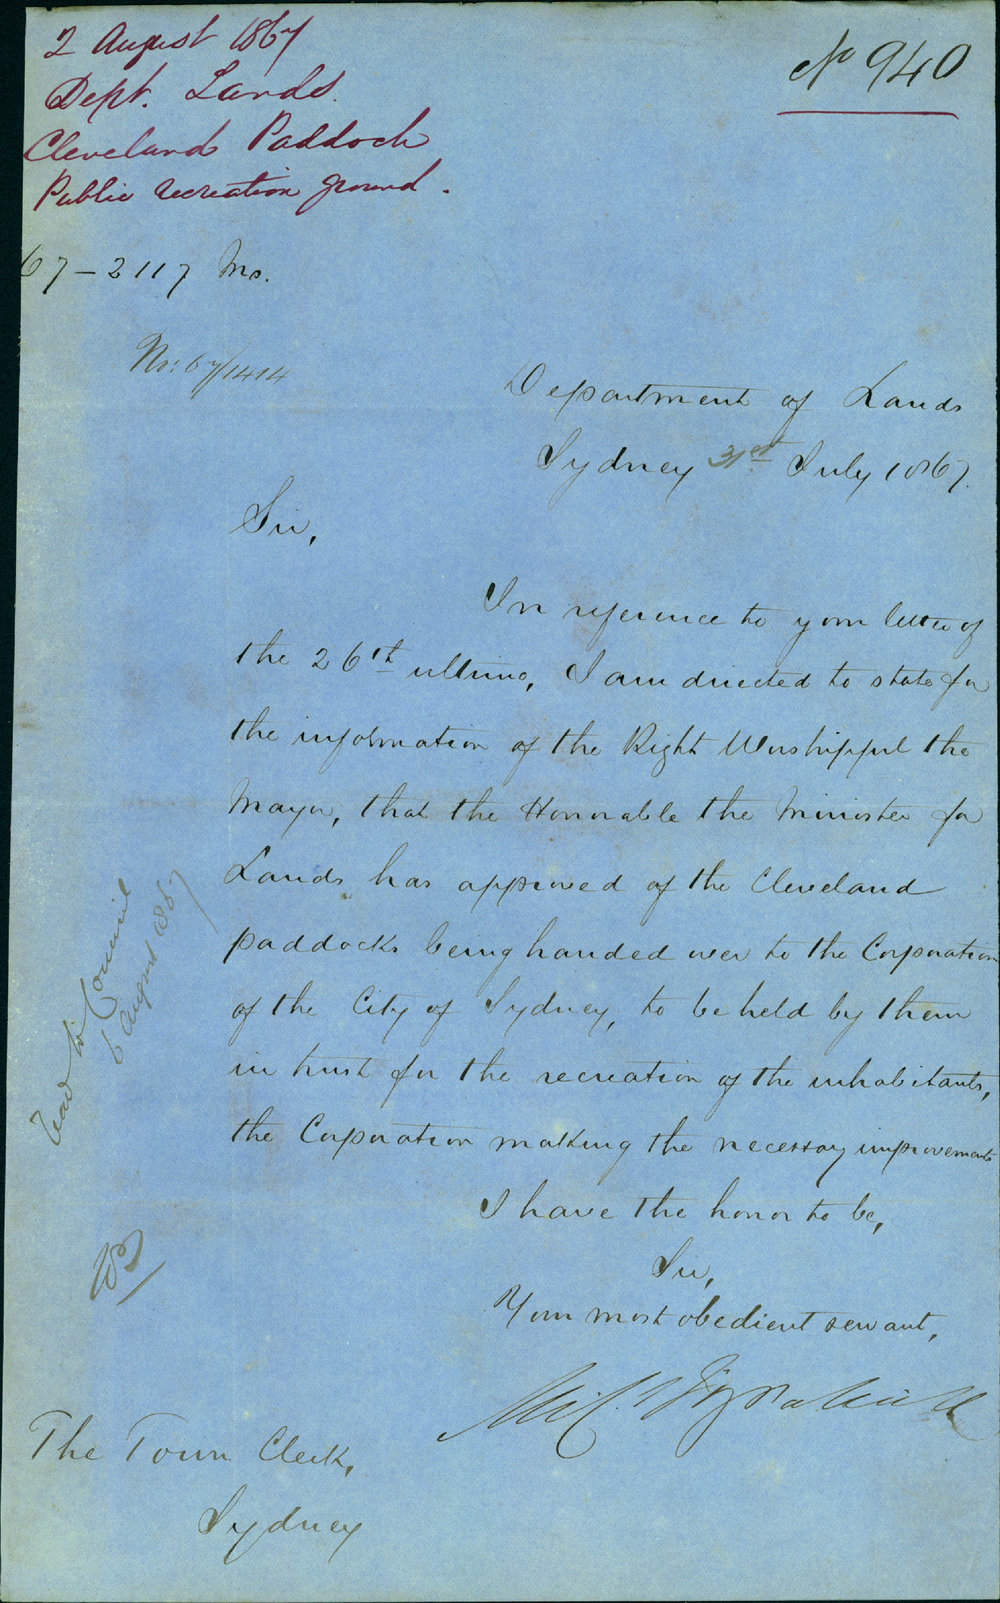 2 August 1867
Dept. Lands.
Cleveland Paddock
Public recreation ground.
No 940
67-2117 Ms.
No: 67/1414
Department of Lands
Sydney 31st July 1867.
Sir,
In reference to your letter of
the 26th ultimo, I am directed to state for
the information of the Right Worshipful the
Mayor, that the Honorable the Minister for
Lands has approved of the Cleveland
paddocks being handed over to the Corporation
of the City of Sydney, to be held by them
in trust for the recreation of the inhabitants,
the Corporation making the necessary improvements
I have the honor to be,
Sir,
Your most obedient servant,
Mich. Fitzpatrick
The Town Clerk,
Sydney
Read to Council
6 August 1867